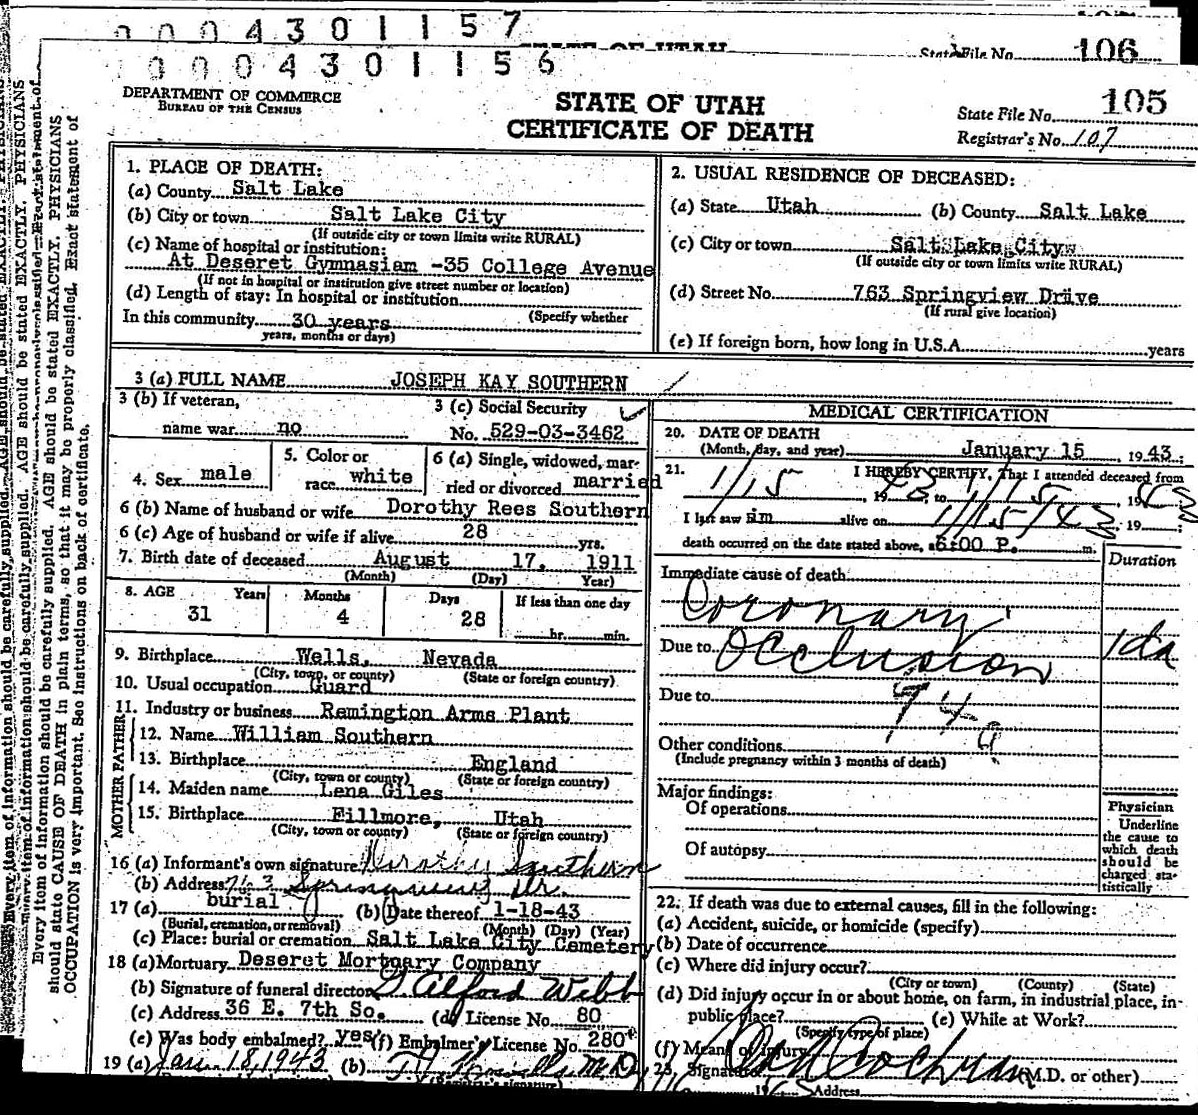 0004301157
STATE OF UTAH
State File No. 106
0004301156
DEPARTMENT OF COMMERCE
BUREAU OF THE CENSUS
STATE OF UTAH
CERTIFICATE OF DEATH
State File No. 105
Registrar's No. 107
Every item of information should be carefully supplied. AGE should be stated EXACTLY. PHYSICIANS
should state CAUSE OF DEATH in plain terms, so that it may be properly classified. Exact statement of
OCCUPATION is very important. See instructions on back of certificate.
1. PLACE OF DEATH:
(a) County Salt Lake
(b) City or town Salt Lake City
(If outside city or town limits write RURAL)
(c) Name of hospital or institution:
At Deseret Gymnasiam -35 College Avenue
(If not in hospital or institution give street number or location)
(d) Length of stay: In hospital or institution
(Specify whether
In this community 30 years
years, months or days)
2. USUAL RESIDENCE OF DECEASED:
(a) State Utah (b) County Salt Lake
(c) City or town Salt Lake City
(If outside city or town limits write RURAL)
(d) Street No. 763 Springview Drive
(If rural give location)
(e) If foreign born, how long in U.S.A. years
3 (a) FULL NAME JOSEPH KAY SOUTHERN
3 (b) If veteran,
name war no
3 (c) Social Security
No. 529-03-3462
4. Sex male
5. Color or
race white
6 (a) Single, widowed, mar-
ried or divorced married
6 (b) Name of husband or wife Dorothy Rees Southern
6 (c) Age of husband or wife if alive 28 yrs.
7. Birth date of deceased August 17, 1911
(Month) (Day) Year)
8. AGE Years Months Days If less than one day
31 4 28 hr. min.
9. Birthplace Wells, Nevada
(City, town, or county) (State or foreign country)
10. Usual occupation Guard
11. Industry or business Remington Arms Plant
FATHER
12. Name William Southern
13. Birthplace England
(City, town or county) (State or foreign country)
MOTHER
14. Maiden name Lena Giles
15. Birthplace Fillmore, Utah
(City, town or county) (State or foreign country)
16 (a) Informant's own signature Dorothy Southern
(b) Address 763 Springview Dr.
17 (a) burial (b) Date thereof 1-18-43
(Burial, cremation, or removal) (Month) (Day) (Year)
(c) Place: burial or cremation Salt Lake City Cemetery
18 (a) Mortuary Deseret Mortuary Company
(b) Signature of funeral director Alford Webb
(c) Address 36 E. 7th So. (d) License No. 80
(e) Was body embalmed? yes (f) Embalmer's License No. 280
19 (a) Jan. 18, 1943 (b) M.D.
(Registrar's signature)
MEDICAL CERTIFICATION
20. DATE OF DEATH
(Month, day, and year) January 15, 1943.
21. I HEREBY CERTIFY, That I attended deceased from
1/15, 1943, to 1/15, 1943
I last saw him alive on 1/15/43 19
death occurred on the date stated above, at 6:00 P. m.
Duration
Immediate cause of death
Coronary
Due to Occlusion 1 da
Due to 94a
Other conditions
(Include pregnancy within 3 months of death)
Major findings:
Of operations
Of autopsy
Physician
Underline
the cause to
which death
should be
charged sta-
tistically
22. If death was due to external causes, fill in the following:
(a) Accident, suicide, or homicide (specify)
(b) Date of occurrence
(c) Where did injury occur?
(City or town) (County) (State)
(d) Did injury occur in or about home, on farm, in industrial place, in-
public place? (e) While at Work?
(Specify type of place)
(f) Means of injury
23. Signature Cochran (M.D. or other)
Address